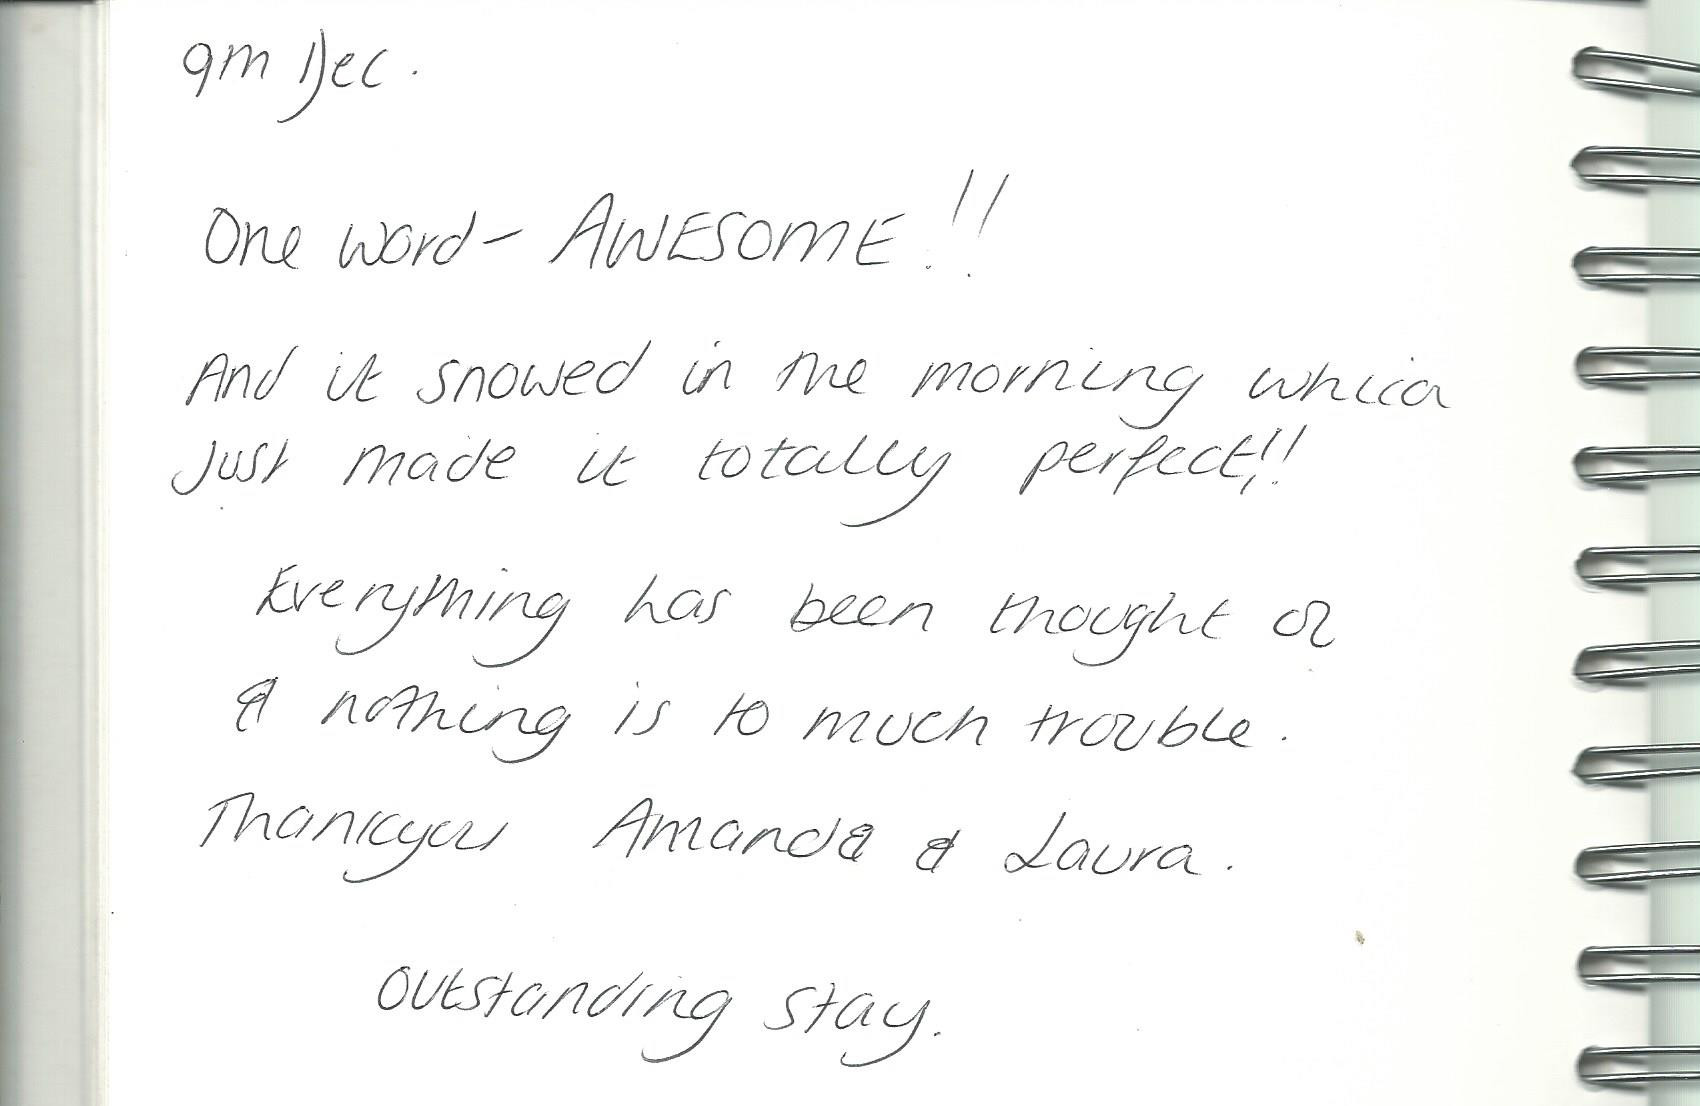 9th Dec.
One word - AWESOME!!
And it snowed in the morning which
just made it totally perfect!!
Everything has been thought of
& nothing is to much trouble.
Thankyou Amanda & Laura.
Outstanding stay.